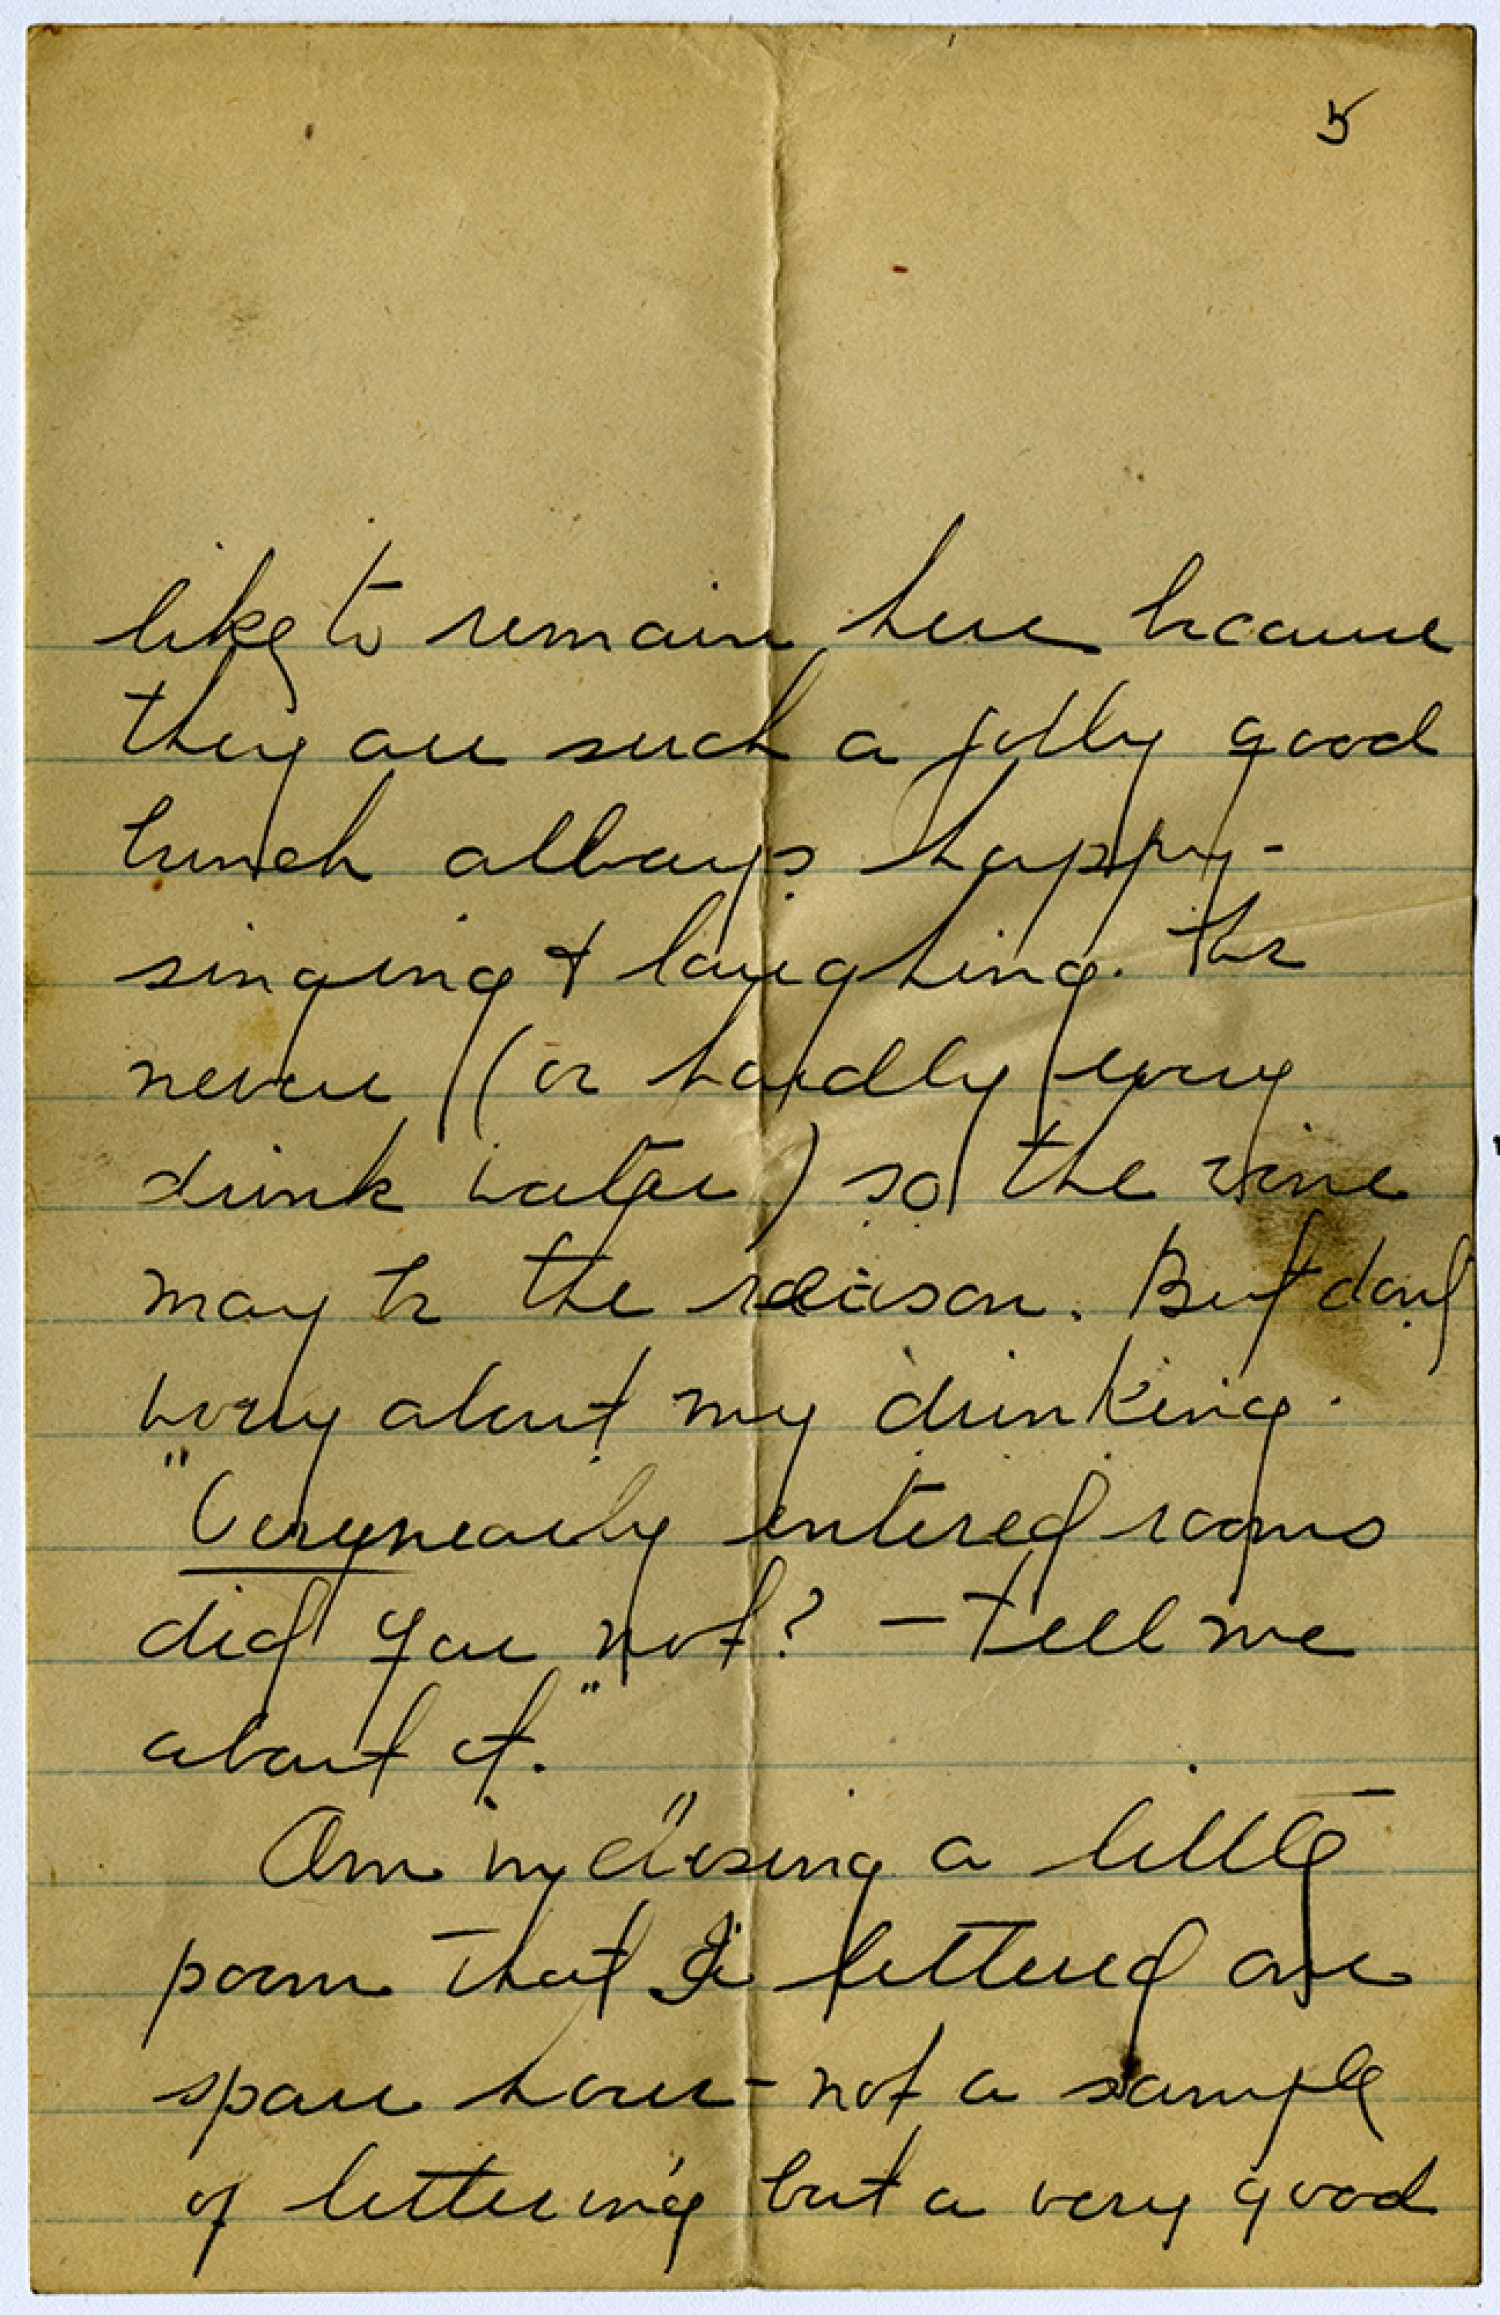 5
like to remain here because
they are such a jolly good
bunch always happy-
singing & laughing. the
never (or hardly every
drink water) so the wine
may be the reason. But dont
worry about my drinking.
"Very nearly entered rooms
did you not? — tell me
about it."
Am inclosing a little
poem that I lettered one
spare hour - not a sample
of lettering but a very good